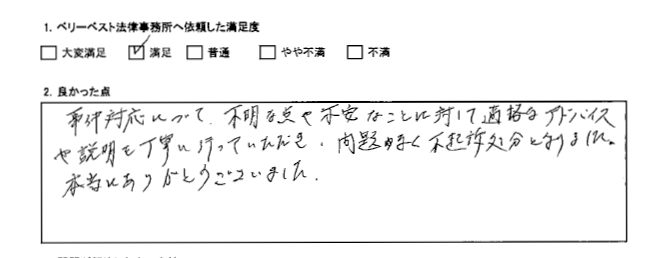 1. ベリーベスト法律事務所へ依頼した満足度
□ 大変満足 ☑ 満足 □ 普通 □ やや不満 □ 不満
2. 良かった点
事件対応について、不明な点や不安なことに対して適格なアドバイス
や説明を丁寧に行っていただき、問題なく不起訴処分となりました。
本当にありがとうございました。